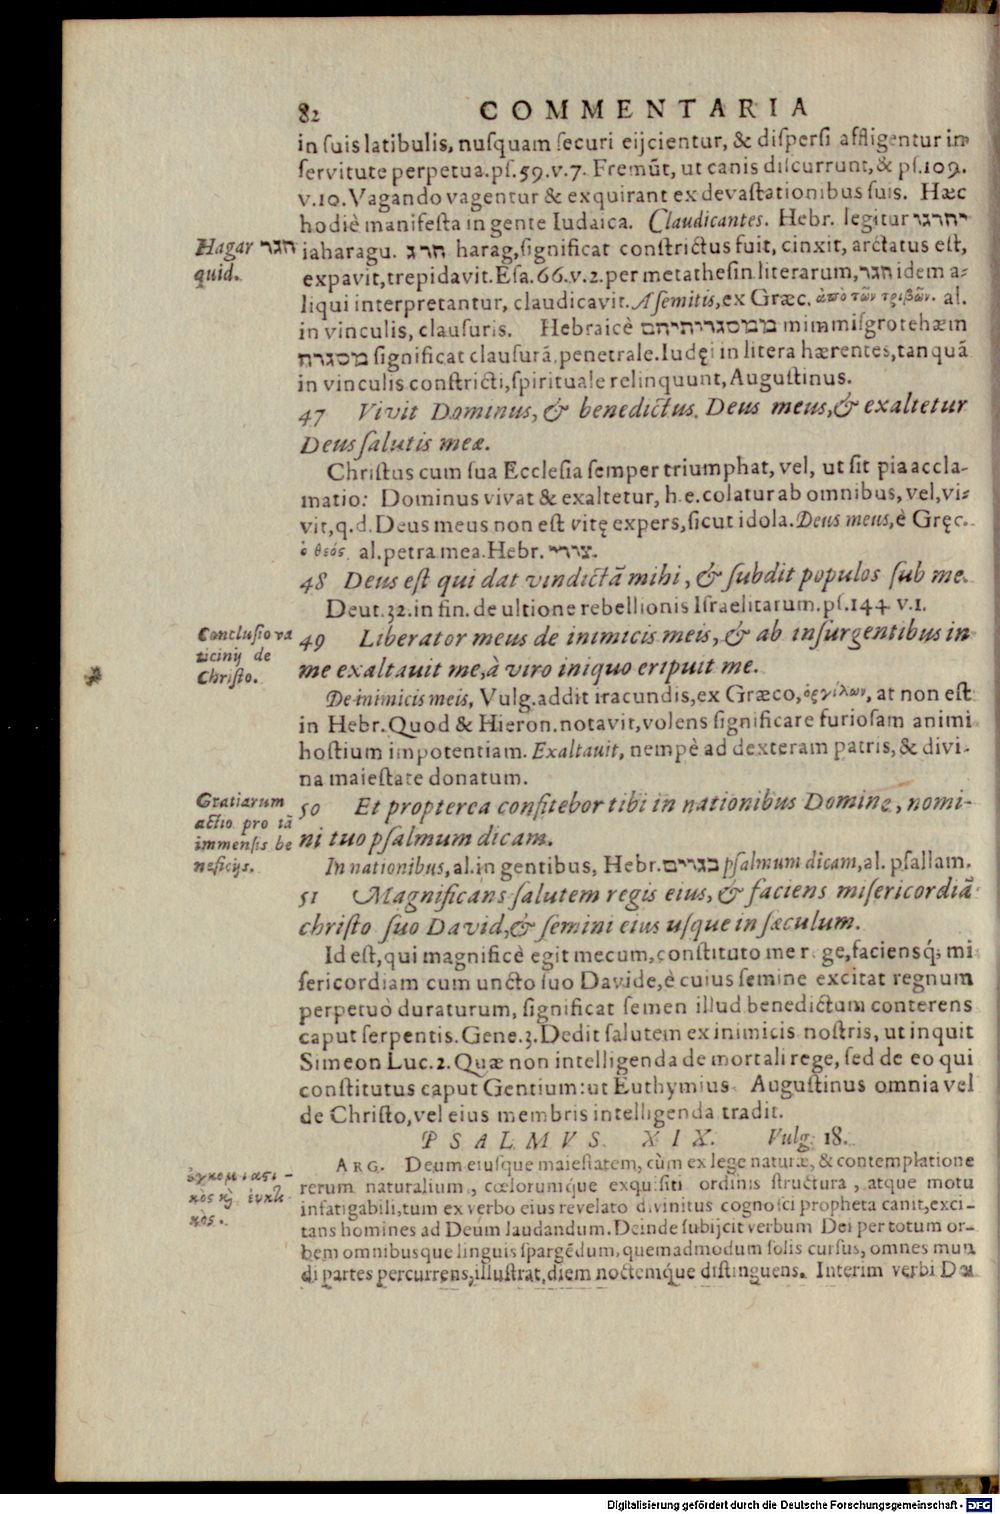 82 COMMENTARIA
in suis latibulis, nusquam securi eijcientur, & dispersi affligentur in
servitute perpetua. ps. 59. v. 7. Fremūt, ut canis discurrunt, & ps. 109.
v. 10. Vagando vagentur & exquirant ex devastationibus suis. Hæc
hodiè manifesta in gente Iudaica. Claudicantes. Hebr. legitur יחרגו
Hagar חגר
quid.
iaharagu. חרג harag, significat constrictus fuit, cinxit, arctatus est,
expavit, trepidavit. Esa. 66. v. 2. per metathesin literarum, חגר idem a-
liqui interpretantur, claudicavit. A semitis, ex Græc. ἀπὸ τῶν τριβῶν. al.
in vinculis, clausuris. Hebraicè ממסגרותיהם mimmisgrotehæm
מסגרת significat clausurā, penetrale. Iudęi in litera hærentes, tanquā
in vinculis constricti, spirituale relinquunt, Augustinus.
47 Vivit Dominus, & benedictus. Deus meus, & exaltetur
Deus salutis meæ.
Christus cum sua Ecclesia semper triumphat, vel, ut sit pia accla-
matio: Dominus vivat & exaltetur, h. e. colatur ab omnibus, vel, vi-
vit, q. d. Deus meus non est vitę expers, sicut idola. Deus meus, è Gręc.
ὁ θεός. al. petra mea. Hebr. צורי.
48 Deus est qui dat vindictā mihi, & subdit populos sub me.
Deut. 32. in fin. de ultione rebellionis Israelitarum. ps. 144. v. 1.
Conclusio va
ticinij de
Christo.
49 Liberator meus de inimicis meis, & ab insurgentibus in
me exaltauit me, à viro iniquo eripuit me.
De inimicis meis, Vulg. addit iracundis, ex Græco, ὀργίλων, at non est
in Hebr. Quod & Hieron. notavit, volens significare furiosam animi
hostium impotentiam. Exaltauit, nempè ad dexteram patris, & divi-
na maiestate donatum.
Gratiarum
actio pro tā
immensis be
neficijs.
50 Et propterea confitebor tibi in nationibus Domine, nomi-
ni tuo psalmum dicam.
In nationibus, al. in gentibus, Hebr. בגויים psalmum dicam, al. psallam.
51 Magnificans salutem regis eius, & faciens misericordiā
christo suo David, & semini eius usque in sæculum.
Id est, qui magnificè egit mecum, constituto me r ge, faciensq́; mi
sericordiam cum uncto suo Davide, è cuius semine excitat regnum
perpetuò duraturum, significat semen illud benedictum conterens
caput serpentis. Gene. 3. Dedit salutem ex inimicis nostris, ut inquit
Simeon Luc. 2. Quæ non intelligenda de mortali rege, sed de eo qui
constitutus caput Gentium: ut Euthymius Augustinus omnia vel
de Christo, vel eius membris intelligenda tradit.
PSALMVS XIX. Vulg. 18.
ARG. Deum eiusque maiestatem, cùm ex lege naturæ, & contemplatione
rerum naturalium, cœlorumque exquisiti ordinis structura, atque motu
infatigabili, tum ex verbo eius revelato divinitus cognosci propheta canit, exci-
tans homines ad Deum laudandum. Deinde subijcit verbum Dei per totum or-
bem omnibusque linguis spargēdum, quemadmodum solis cursus, omnes mun
di partes percurrens, illustrat, diem noctemque distinguens. Interim verbi Dei
Digitalisierung gefördert durch die Deutsche Forschungsgemeinschaft - DFG